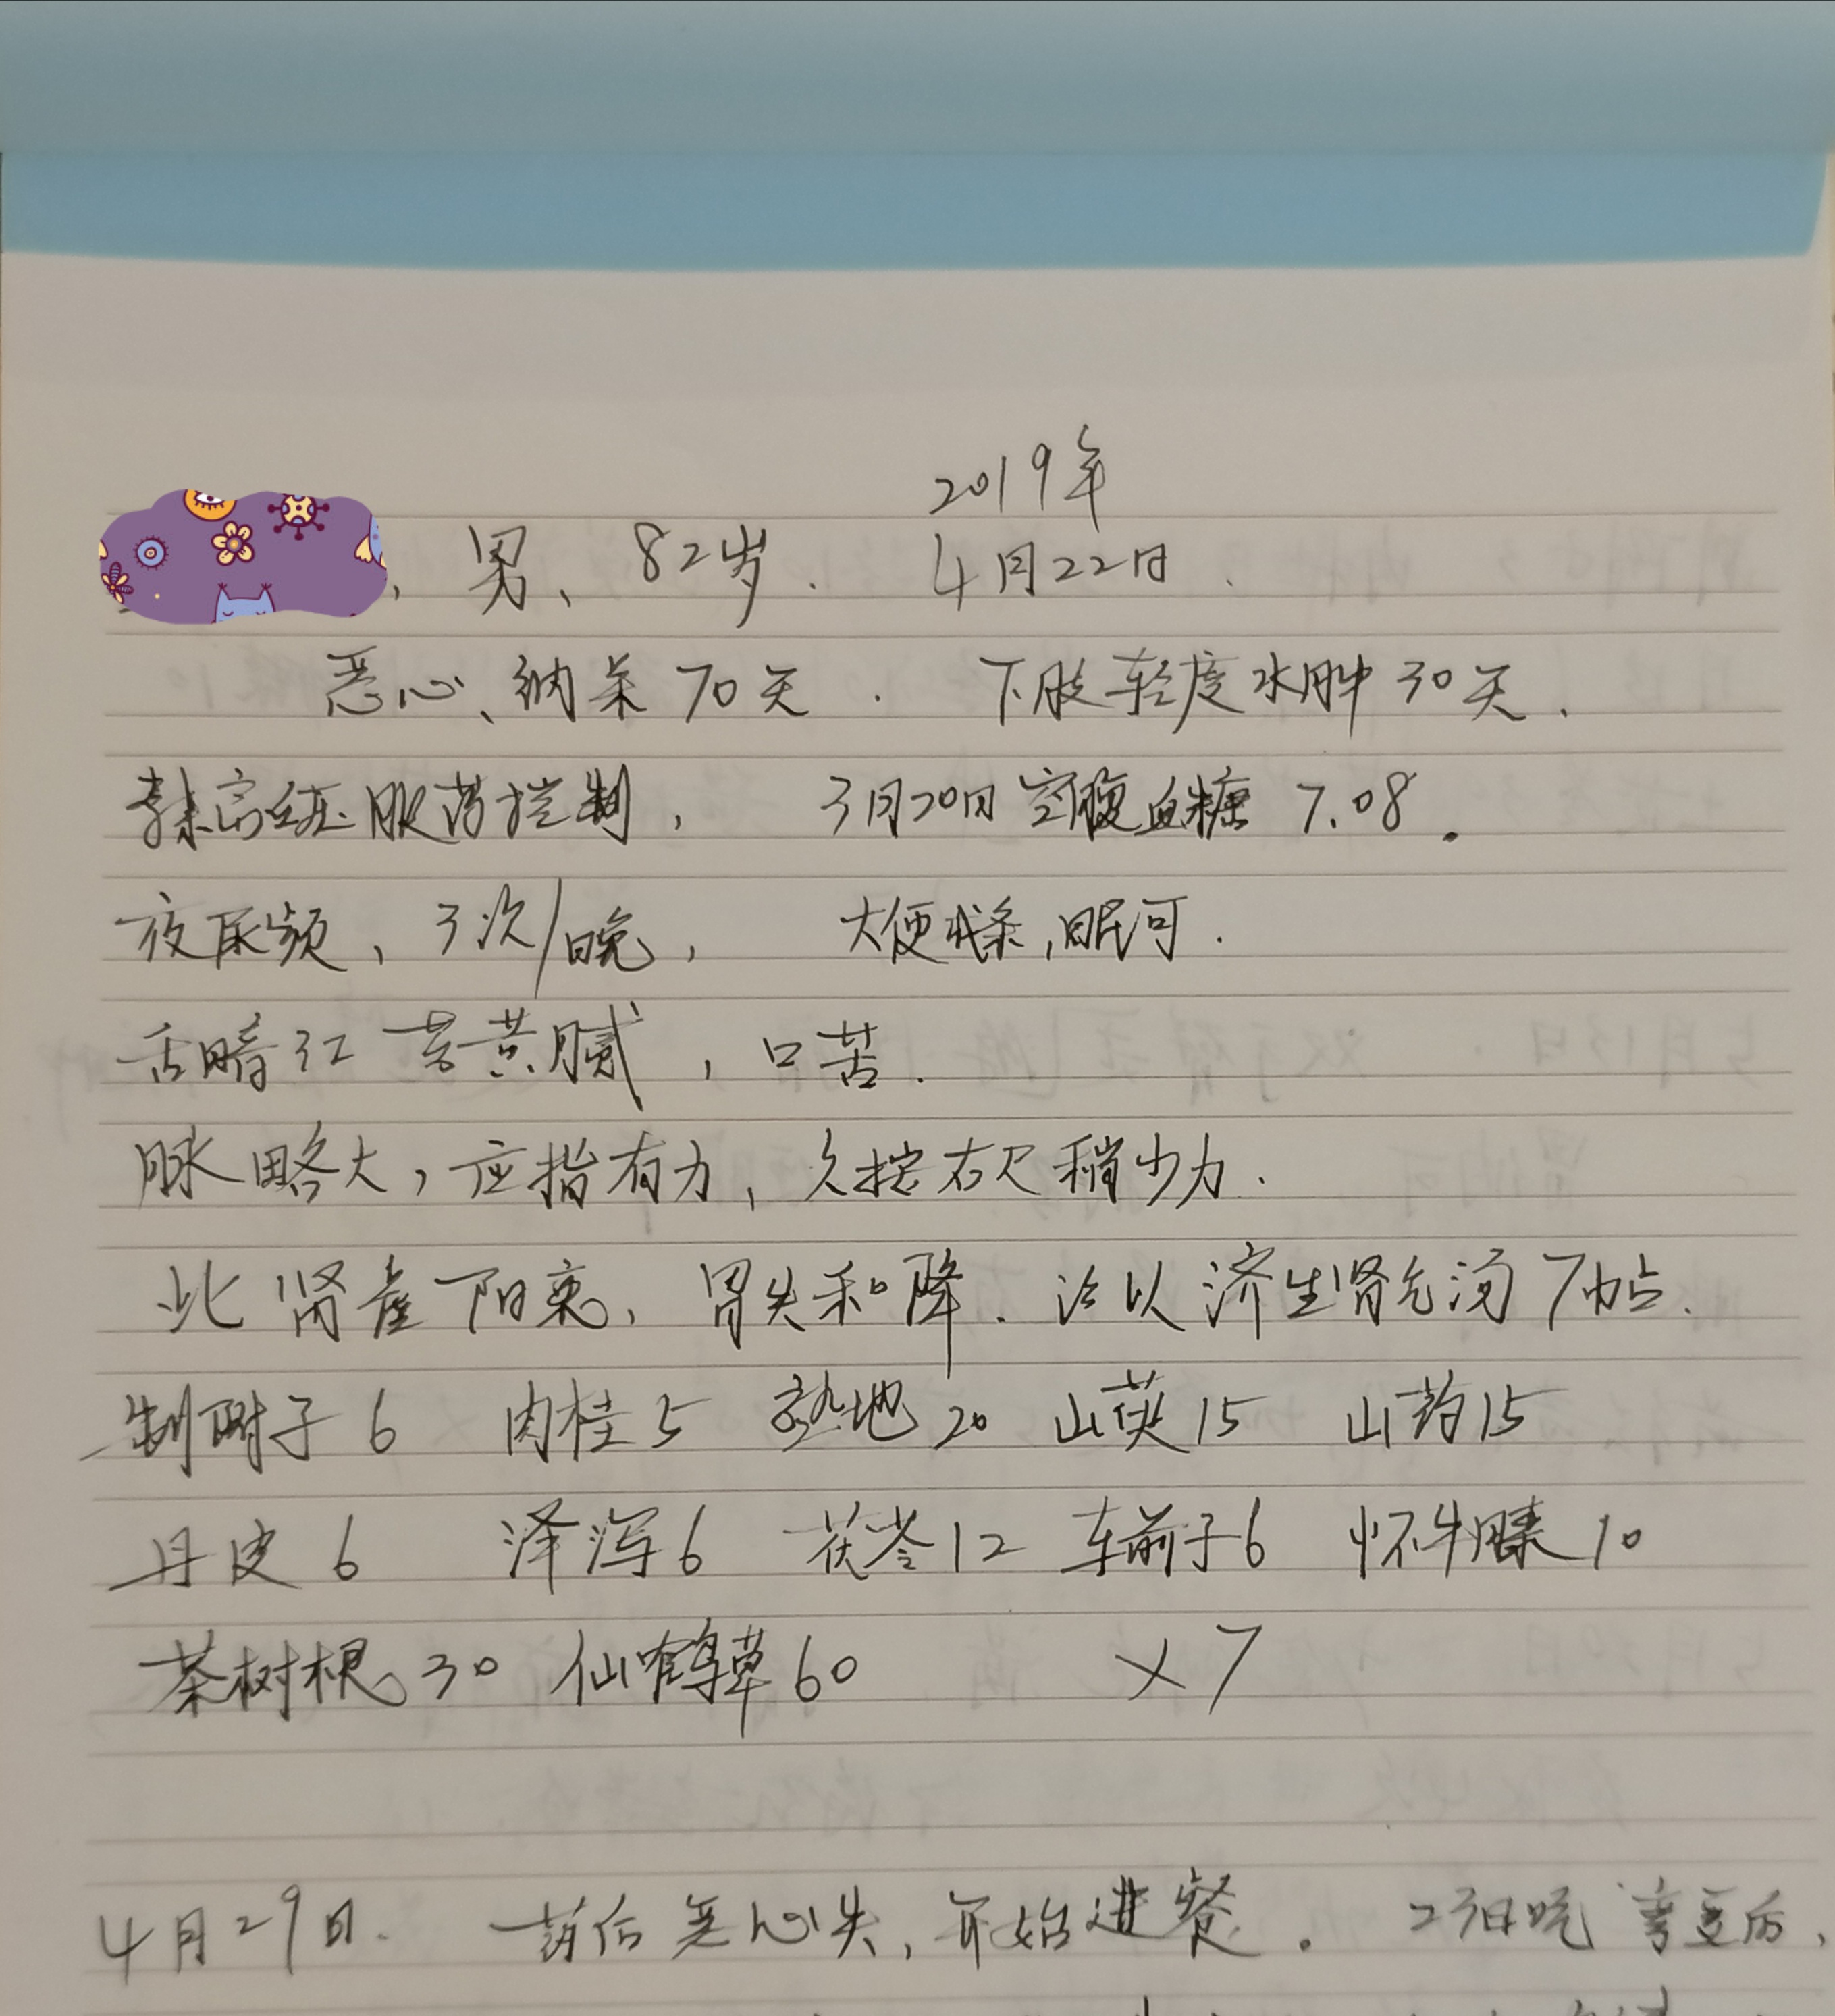 2019年
男、82岁. 4月22日.
恶心、纳呆70天. 下肢轻度水肿30天.
素高血压服药控制, 3月20日空腹血糖7.08.
夜尿频, 3次/晚, 大便成条, 眠可.
舌暗红苔黄腻, 口苦.
脉略大, 应指有力, 久按右尺稍少力.
此肾虚阳衰, 胃失和降. 治以济生肾气汤7帖.
制附子6 肉桂5 熟地20 山萸15 山药15
丹皮6 泽泻6 茯苓12 车前子6 怀牛膝10
茶树根30 仙鹤草60 ×7
4月29日. 药后恶心失, 开始进餐. 23日吃弯豆后,